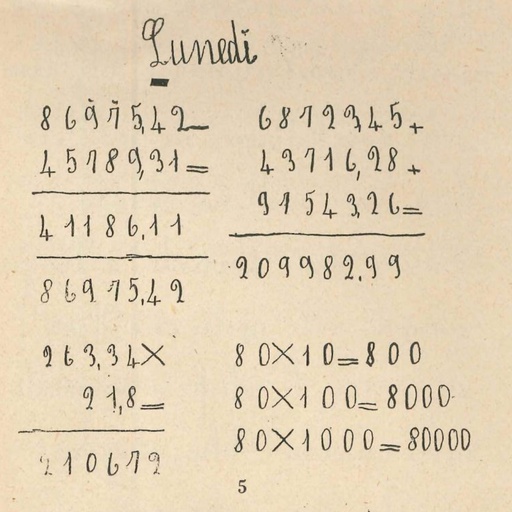 Lunedì
86975,42-
45789,31=
41186,11
86975,42
68723,45+
43716,28+
97543,26=
209982,99
263,34×
21,8=
210672
80×10=800
80×100=8000
80×1000=80000
5